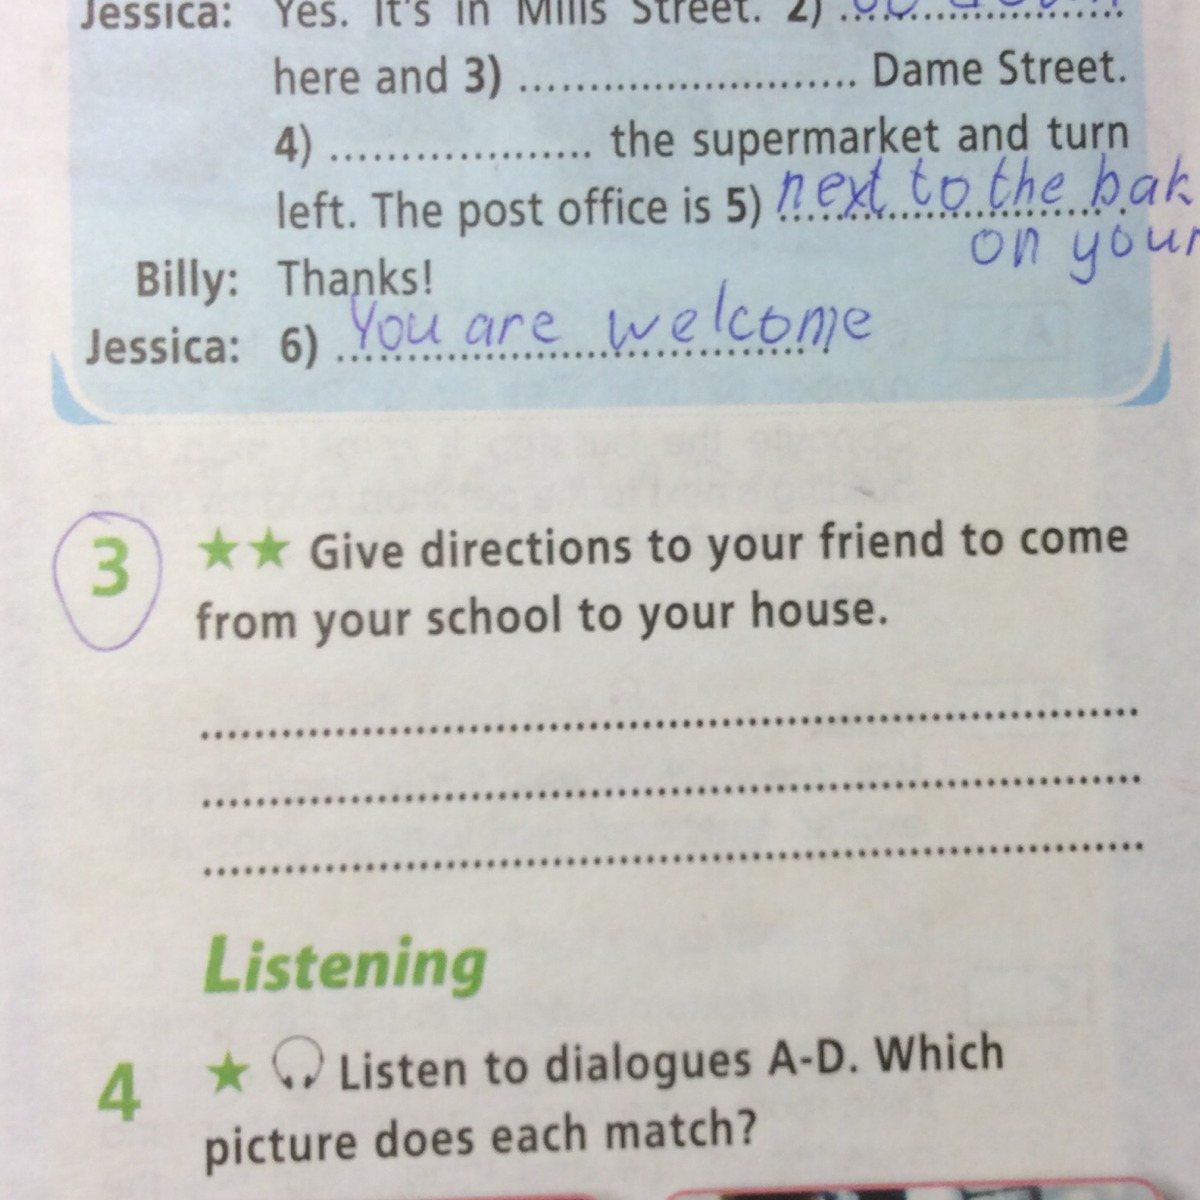 Jessica: Yes. It's in Mills Street. 2) ........................
here and 3) ........................ Dame Street.
4) ................... the supermarket and turn
left. The post office is 5) next to the bak
on your
Billy: Thanks!
Jessica: 6) You are welcome
3 ★★ Give directions to your friend to come
from your school to your house.
Listening
4 ★ Listen to dialogues A-D. Which
picture does each match?